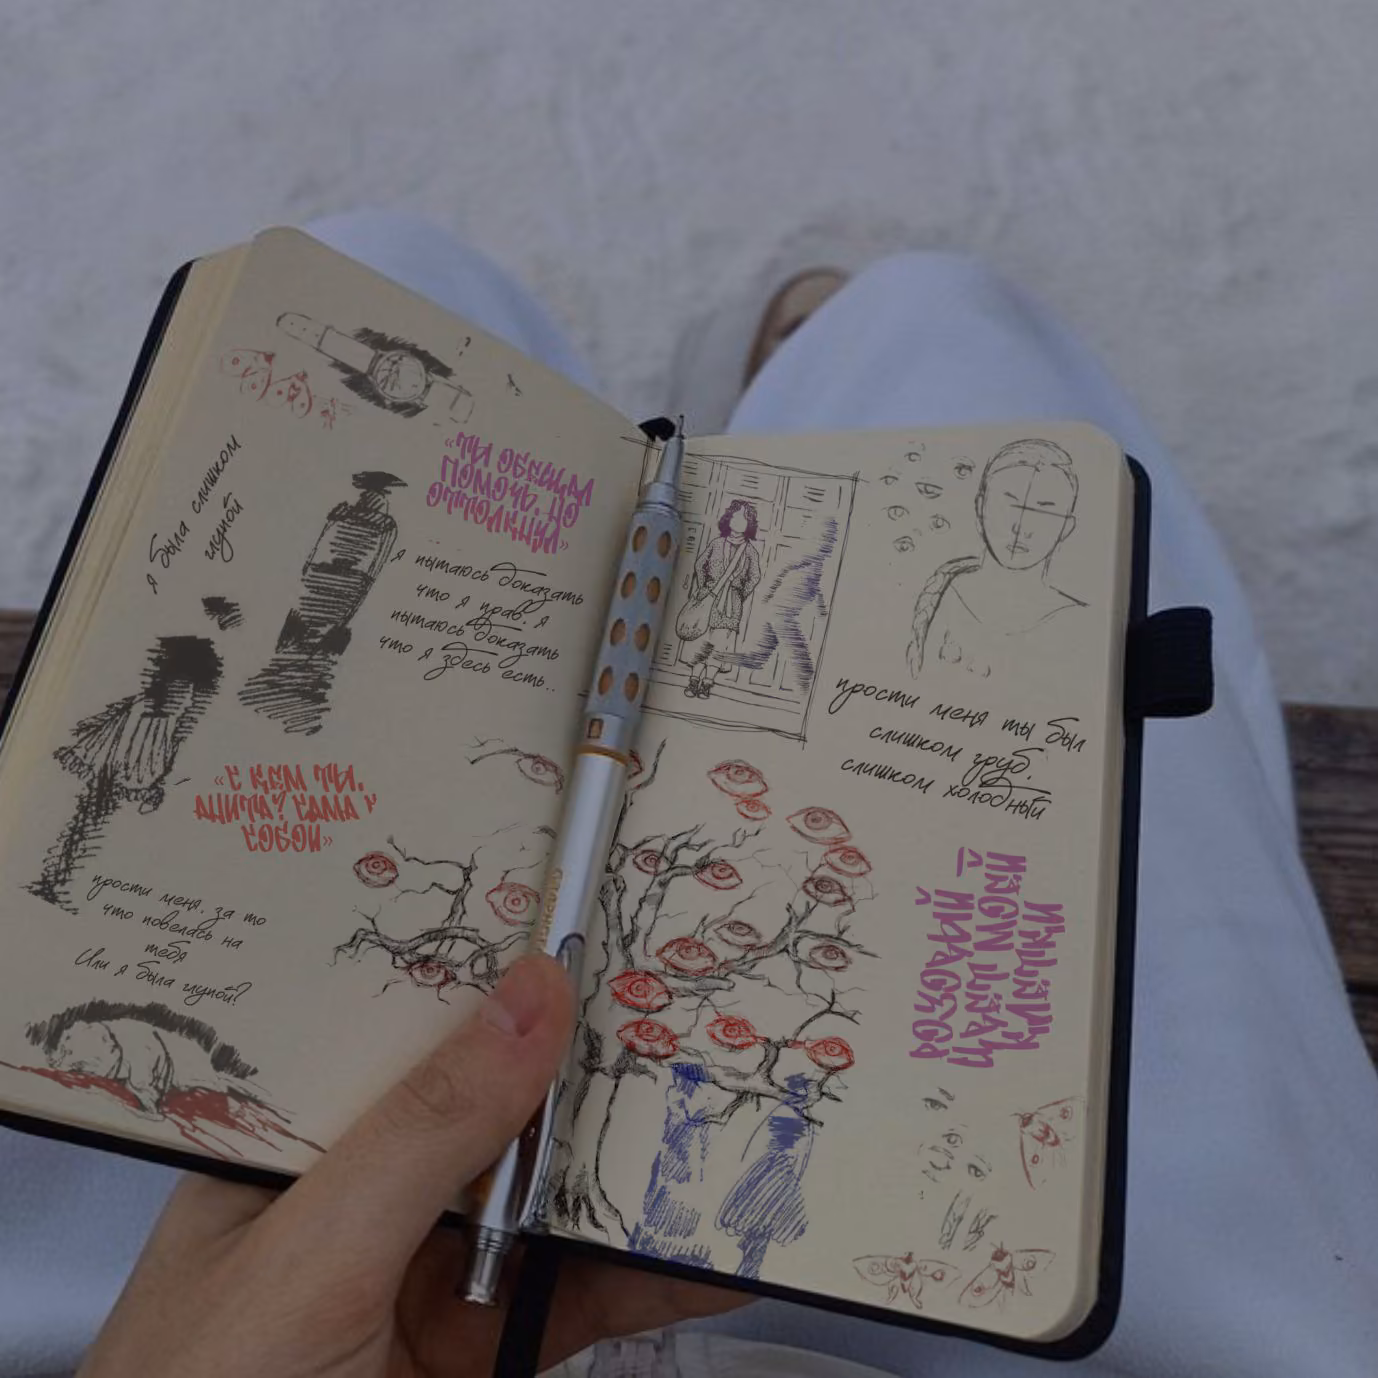 я была слишком
глупой
«ты обещал
помочь, но
оттолкнул»
я пытаюсь доказать
что я прав. я
пытаюсь доказать
что я здесь есть..
«с кем ты,
Анита? сама с
собой»
прости меня. за то
что повелась на
тебя
Или я была глупой?
прости меня ты был
слишком груб.
слишком холодный